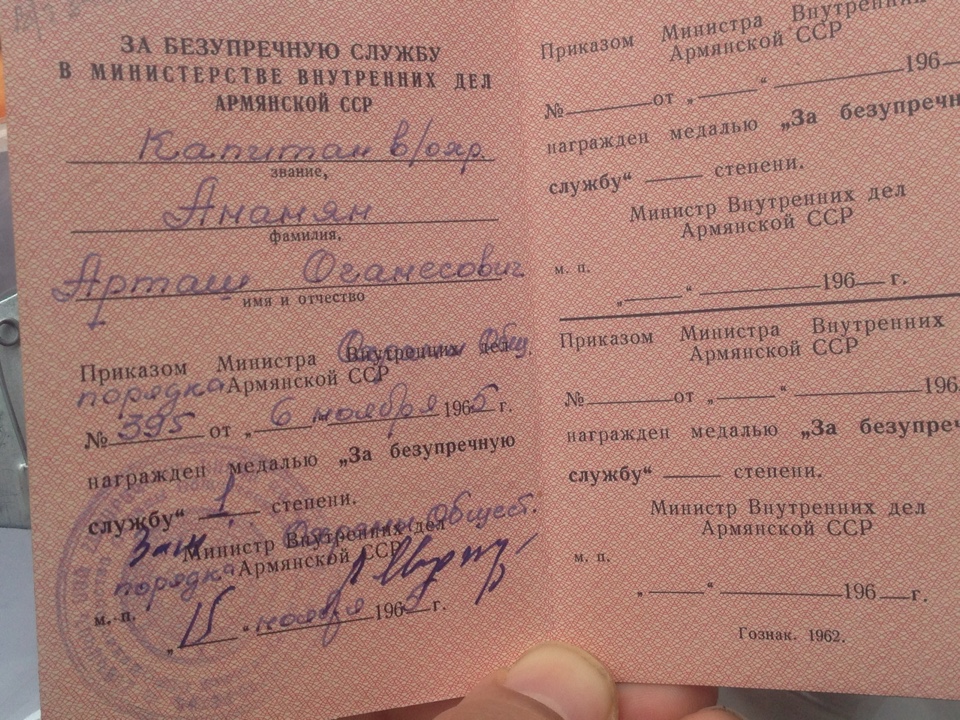 ЗА БЕЗУПРЕЧНУЮ СЛУЖБУ
В МИНИСТЕРСТВЕ ВНУТРЕННИХ ДЕЛ
АРМЯНСКОЙ ССР
Капитан в/охр.
звание,
Ананян
фамилия,
Арташ Оганесович
имя и отчество
Приказом Министра Внутренних дел Охраны Общ.
порядка Армянской ССР
№ 395 от „ 6 “ ноября 1965 г.
награжден медалью „За безупречную
службу“ 1 степени.
Зам. Министр Внутренних дел Охраны Общест.
порядка Армянской ССР
м. п.
„ 15 “ ноября 196 г.
Приказом Министра Внутренних
Армянской ССР
№ от „ “ 196
награжден медалью „За безупречн
службу“ степени.
Министр Внутренних дел
Армянской ССР
м. п.
„ “ 196 г.
Приказом Министра Внутренних
Армянской ССР
№ от „ “ 196
награжден медалью „За безупреч
службу“ степени.
Министр Внутренних дел
Армянской ССР
м. п.
„ “ 196 г.
Гознак. 1962.